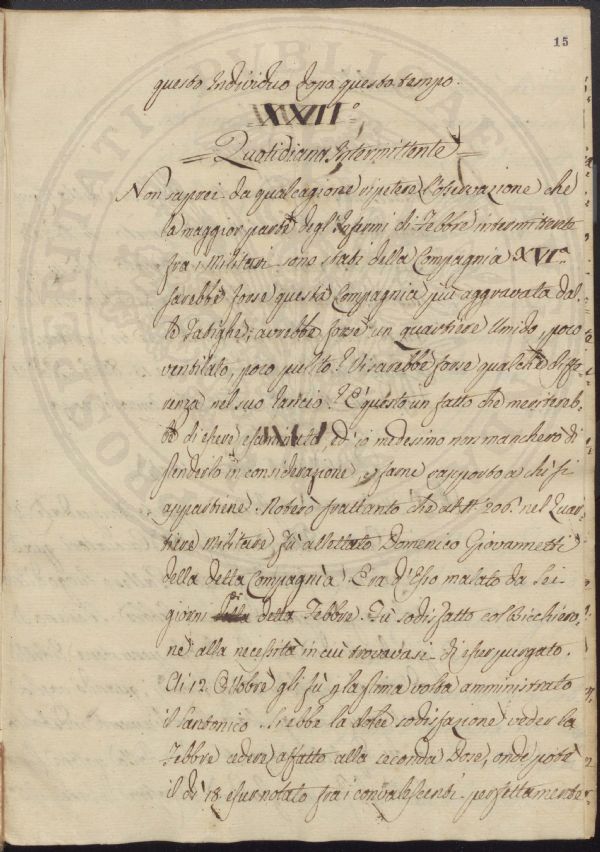 15
questo Individuo dopo questo tempo.
XXXII°
Quotidiana Intermittente
Non saprei da qual cagione ripetere l'observazione che
la maggior parte degl'Infermi di Febbre intermittente
fra i Militari sono stati della Compagnia XVI.a
sarebbe forse questa Compagnia più aggravata dal-
le Fatighe; avrebbe forse un quartiere Umido, poco
ventilato, poco pulito? Vi sarebbe forse qualche diffe-
renza nel suo rancio? E' questo un fatto che meritereb-
be di essere esaminato, ed io medesimo non mancherò di
prenderlo in considerazione, e farne rapporto a chi si
appartiene. Noterò frattanto che al N. 206. nel Quar-
tiere Militare fù allettato Domenico Giovannetti
della detta Compagnia. Era d'Esso malato da sei
giorni di detta Febbre. Fù sodisfatto col Bicchiero-
ne alla necessità in cui trovavasi di esser purgato.
Li 12 Ottobre gli fù p la prima volta amministrato
il Santonico. Si ebbe la dolce sodisfazione veder la
Febbre cedere affatto alla seconda Dose, onde potè
il dì 18 esser notato fra i convalescenti perfettamente